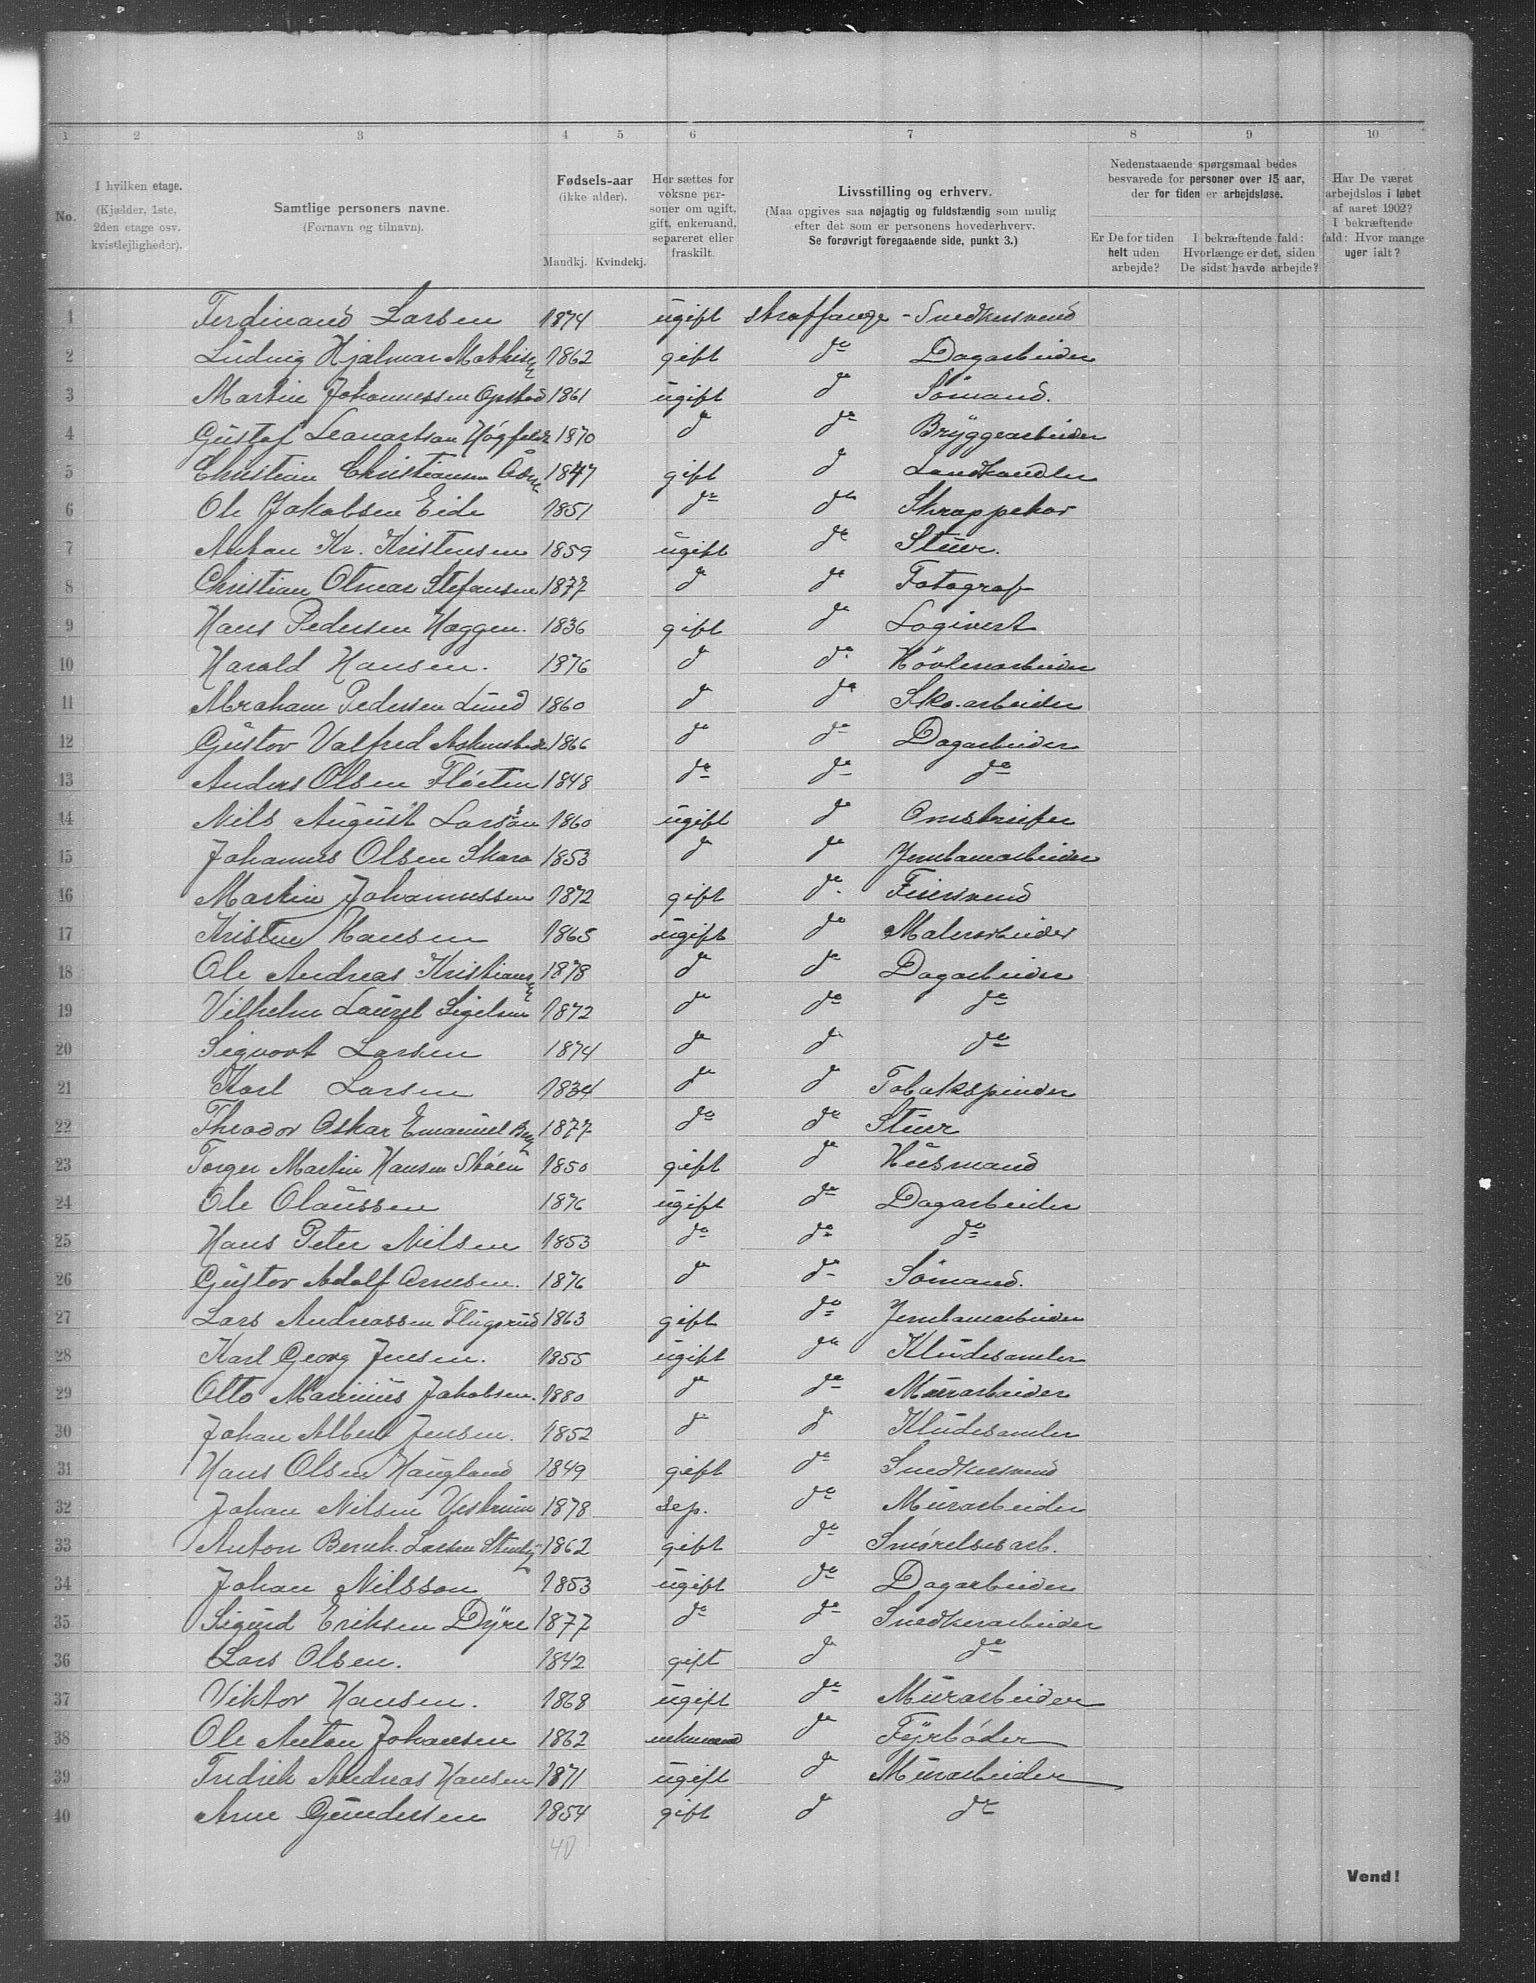 1 2 3 4 5 6 7 8 9 10
No.
I hvilken etage.
(Kjælder, 1ste,
2den etage osv.
kvistlejligheder).
Samtlige personers navne.
(Fornavn og tilnavn).
Fødsels-aar
(ikke alder).
Mandkj. Kvindekj.
Her sættes for
voksne per-
soner om ugift,
gift, enkemand,
separeret eller
fraskilt.
Livsstilling og erhverv.
(Maa opgives saa nøjagtig og fuldstændig som mulig
efter det som er personens hovederhverv.
Se forøvrigt foregaaende side, punkt 3.)
Nedenstaaende spørgsmaal bedes
besvarede for personer over 15 aar,
der for tiden er arbejdsløse.
Er De for tiden
helt uden
arbejde?
I bekræftende fald:
Hvorlænge er det, siden
De sidst havde arbejde?
Har De været
arbejdsløs i løbet
af aaret 1902?
I bekræftende
fald: Hvor mange
uger ialt?
1 Ferdinand Larsen 1874 ugift straffange - Snedkersvend
2 Ludvig Hjalmar Mathisen 1862 gift do Dagarbeider
3 Martin Johannessen Opstad 1861 ugift do Sömand.
4 Gustaf Leonartsan 1870 do do Bryggearbeider
5 Christian Christiansen 1847 gift do Landhandler
6 Ole Jakobsen Eide 1851 do do Skrappekar
7 Anton Kr. Kristensen 1859 ugift do Stuer.
8 Christian Otmar Stefansen 1877 do do Fotograf
9 Hans Pedersen Haggen. 1836 gift do Logivert
10 Harald Hansen. 1876 do do Høvlerarbeider
11 Abraham Pedersen Lund 1860 do do Sko-arbeider
12 Gustav Valfred 1866 do do Dagarbeider
13 Anders Olsen Fløeten 1848 do do do
14 Nils August Larsson 1860 ugift do Omstreifer
15 Johannes Olsen Skara 1853 do do Jernbanearbeider
16 Martin Johannessen 1872 gift do Feiersvend
17 Kristen Hansen 1865 ugift do Malerarbeider
18 Ole Andreas Kristiansen 1878 do do Dagarbeider
19 Vilhelm Laurel Sigelsen 1872 do do do
20 Sigvart Larsen 1874 do do do
21 Karl Larsen 1834 do do Tobakspinder
22 Theodor Oskar Emanuel 1877 do do Stuer
23 Torger Martin Hansen Skøien 1850 gift do Husmand
24 Ole Olaussen 1876 ugift do Dagarbeider
25 Hans Peter Nilsen 1853 do do do
26 Gustav Adolf Arnesen. 1876 do do Sömand.
27 Lars Andreassen Flugsrud 1863 gift do Jernbanearbeider
28 Karl Georg Jensen. 1855 ugift do Kludesamler
29 Otto Marinius Jakobsen. 1880 do do Murarbeider
30 Johan Albert Jensen. 1852 do do Kludesamler
31 Hans Olsen Haugland 1849 gift do Snedkersvend
32 Johan Nilsen Vestrum 1878 sep. do Murarbeider
33 Anton Bernh. Larsen 1862 gift do Smørelsesarb.
34 Johan Nilsson 1853 ugift do Dagarbeider
35 Sigurd Eriksen Dyre 1877 do do Snedkerarbeider
36 Lars Olsen. 1842 gift do do
37 Viktor Hansen. 1868 ugift do Murarbeider
38 Ole Anton Johansen 1862 enkemand do Fyrbøder
39 Fredrik Andreas Hansen 1871 ugift do Murarbeider
40 Arne Gundersen 1854 gift do do
40
Vend!